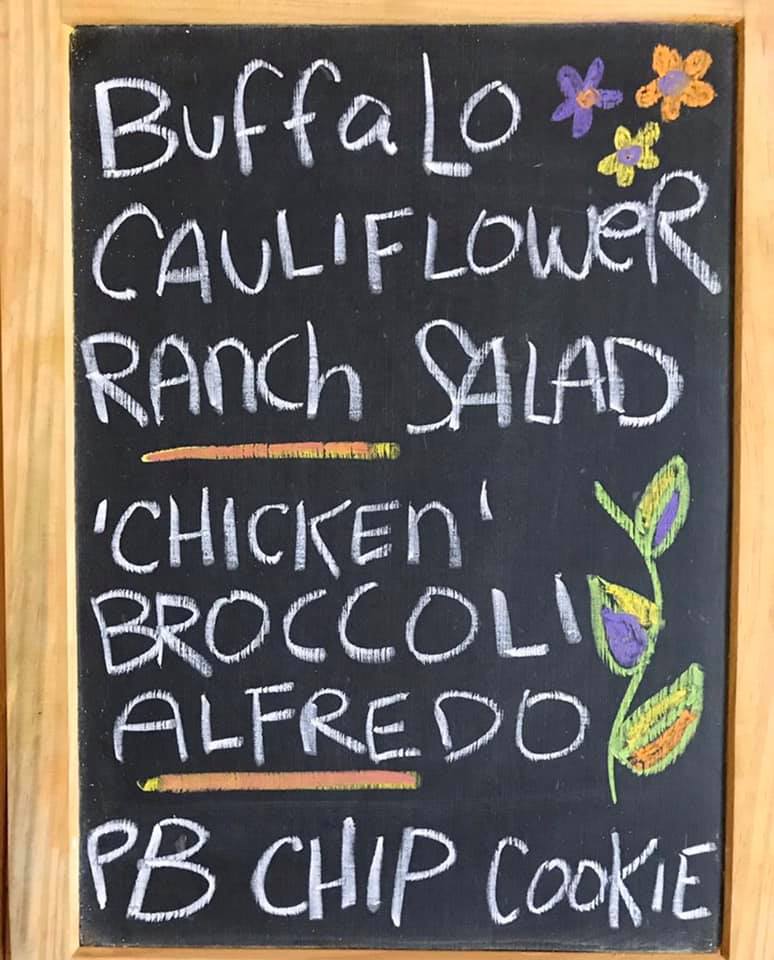 BuffaLo
CAULIFLOWeR
RAnCh SALAD
'CHICKEn'
BROCCOLI
ALFREDO
PB CHIP COOKIE